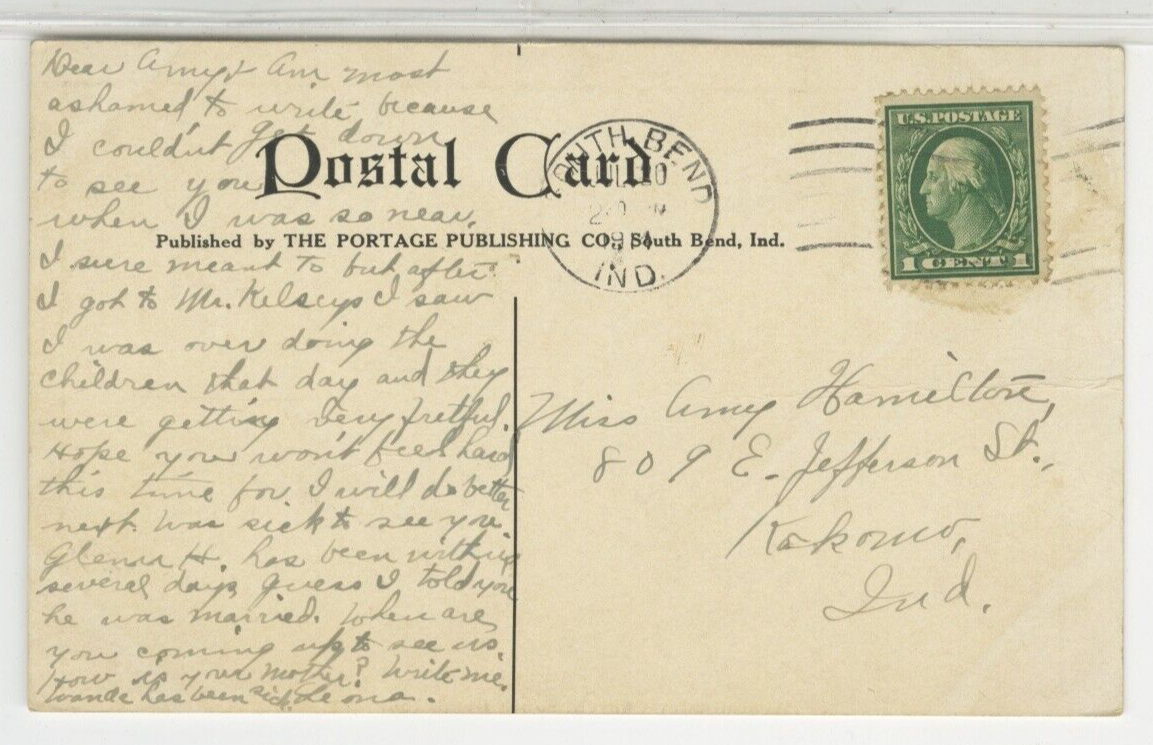 Dear Amy: Am most
ashamed to write because
I couldn't get down
to see you
when I was so near.
I sure meant to but after
I got to Mr. Kelseys I saw
I was over doing the
children that day and they
were getting very fretful.
Hope you won't feel hard
this time for I will do better
next. Was sick to see you
Glenn H. has been with us
several days guess I told you
he was married. When are
you coming up to see us.
How is your mother? Write me.
has been sick. Leona.
Postal Card
Published by THE PORTAGE PUBLISHING CO., South Bend, Ind.
SOUTH BEND
IND.
U.S. POSTAGE
1 CENT 1
Miss Amy Hamilton,
809 E. Jefferson St.,
Kokomo,
Ind.